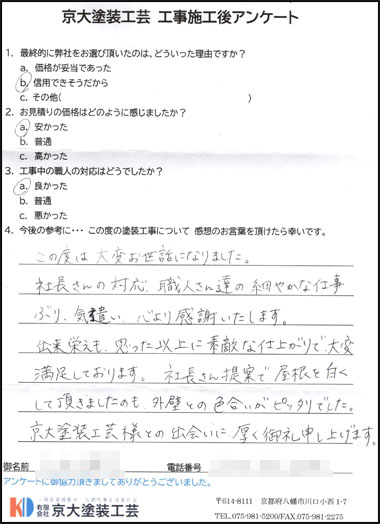 京大塗装工芸 工事施工後アンケート
1. 最終的に弊社をお選び頂いたのは、どういった理由ですか?
a. 価格が妥当であった
b. 信用できそうだから
c. その他( )
2. お見積りの価格はどのように感じましたか?
a. 安かった
b. 普通
c. 高かった
3. 工事中の職人の対応はどうでしたか?
a. 良かった
b. 普通
c. 悪かった
4. 今後の参考に・・・ この度の塗装工事について 感想のお言葉を頂けたら幸いです。
この度は大変お世話になりました。
社長さんの対応、職人さん達の細やかな仕事
ぶり、気遣い、心より感謝いたします。
出来栄えも、思った以上に素敵な仕上がりで大変
満足しております。社長さん提案で屋根を白く
して頂きましたのも、外壁との色合いがピッタリでした。
京大塗装工芸様との出会いに、厚く御礼申し上げます。
御名前 電話番号
アンケートに御協力頂きましてありがとうございました。
有限会社 京大塗装工芸
〒614-8111 京都府八幡市川口小西1-7
TEL.075-981-5200/FAX.075-981-2275